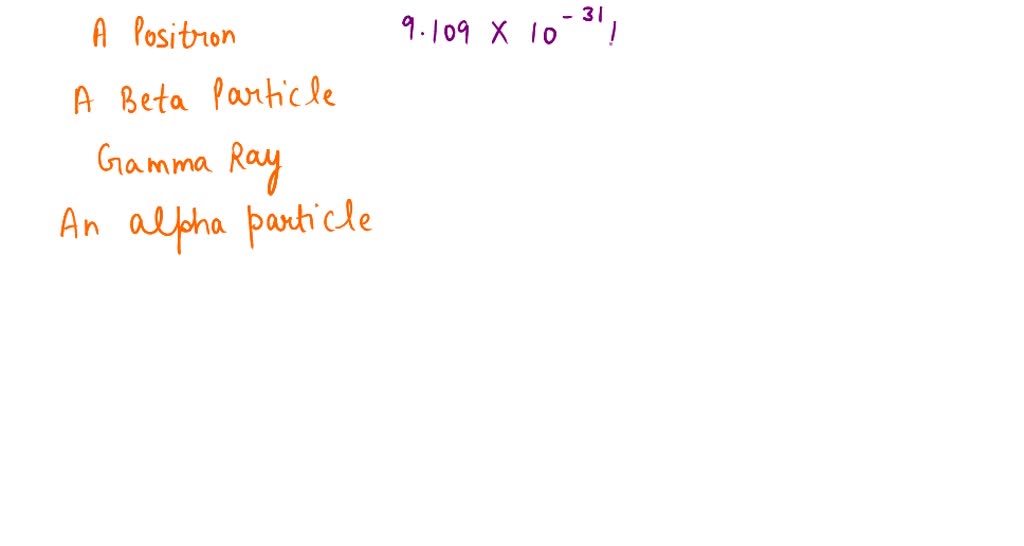 A Positron 9.109 × 10⁻³¹
A Beta Particle
Gamma Ray
An alpha particle